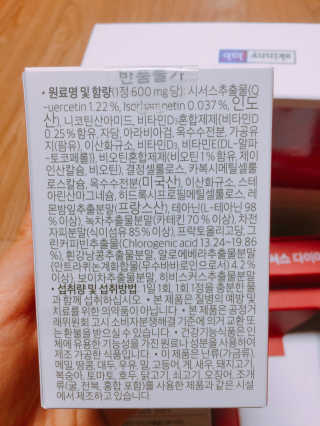 반품불가
• 원료명 및 함량(1정 600mg당): 시서스추출물(Q
uercetin 1.22%, Isorhamnetin 0.037%, 인도
산), 니코틴산아미드, 비타민D₃혼합제제(비타민D
0.25% 함유, 자당, 아라비아검, 옥수수전분, 가공유
지(팜유), 이산화규소, 비타민D₃, 비타민E(DL-알파
-토코페롤)), 비오틴혼합제제(비오틴 1% 함유, 제이
인산칼슘, 비오틴), 결정셀룰로스, 카복시메틸셀룰
로스칼슘, 옥수수전분(미국산), 이산화규소, 스테
아린산마그네슘, 히드록시프로필메틸셀룰로스, 레
몬밤잎추출분말(프랑스산), 테아닌(L-테아닌 98
% 이상), 녹차추출분말(카테킨 70% 이상), 차전
자피분말(식이섬유 85% 이상), 프락토올리고당, 그
린커피빈추출물(Chlorogenic acid 13.24~19.86
%), 흰강낭콩추출분말, 알로에베라추출물분말
(안트라퀴논계화합물(무수바바로인으로서) 4.2%
이상), 보이차추출분말, 히비스커스추출물분말
• 섭취량 및 섭취방법 1일 1회, 1회 1정을 충분한 물
과 함께 섭취하십시오. • 본 제품은 질병의 예방 및
치료를 위한 의약품이 아닙니다. • 본 제품은 공정거
래위원회 고시 소비자분쟁해결 기준에 의거 교환 또
는 환불을 받으실 수 있습니다. • 건강기능식품은 인
체에 유용한 기능성을 가진 원료나 성분을 사용하여
제조 가공한 식품입니다. • 이 제품은 난류(가금류),
메밀, 땅콩, 대두, 우유, 밀, 고등어, 게, 새우, 돼지고기,
복숭아, 토마토, 호두, 닭고기, 쇠고기, 오징어, 조개
류(굴, 전복, 홍합 포함)를 사용한 제품과 같은 시설
에서 제조하고 있습니다.
서스 다이